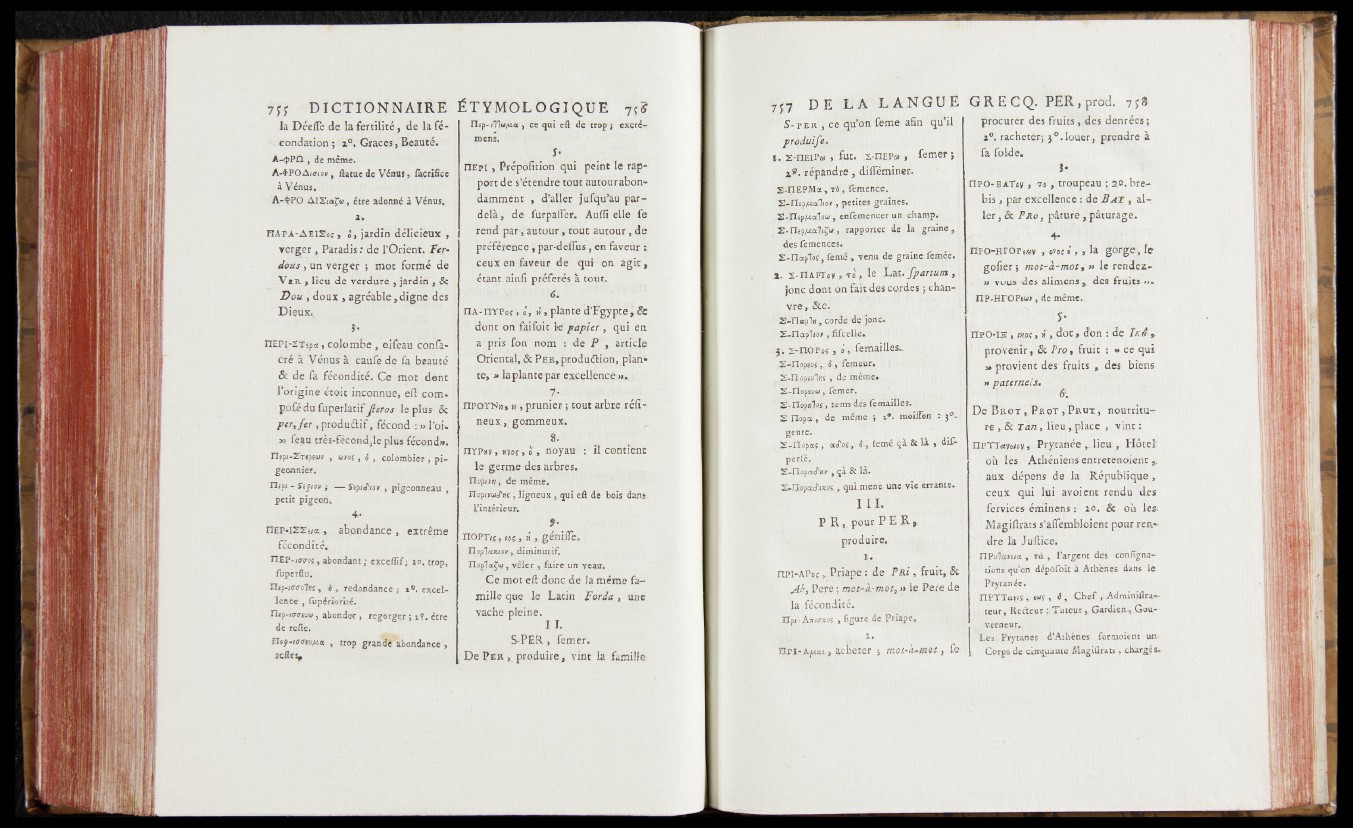 755 DICTIONNAIRE ÉTYMOLOGIQUE 756
la Déesse de la fertilité, de la fé-
condation ; 2°. Graces, Beauté.
Α-ΦΡΩ, de même.
Α-ΦΡΟΔισιον, statue de Vénus, sacrifice
à Vénus.
Α-ΦΡΟ ΔΙΣιαζω, être adonné à Vénus.
2.
ΠΑΡΑ-ΔΕΙΣος, ὁ, jardin délicieux,
verger, Paradis : de l'Orient. Fer-
dous, un verger ; mot formé de
VER, lieu de verdure, jardin, &
Dou, doux, agréable, digne des
Dieux.
3.
ΠΕΡΙ-ΣΤερα, colombe, oiseau consa-
cré à Vénus à cause de sa beauté
& de sa fécondité. Ce mot dont
l'origine étoit inconnue, est com-
posé du superlatif steros le plus &
per, fer, productif, fécond : » l'oi-
» seau très-fécond, le plus fécond».
Περι-Στερεων, ωνος, ὁ, colombier, pi-
geonnier.
Περι-Στεριον ; — Στεριδιον, pigeonneau,
petit pigeon.
4.
ΠΕΡ-ΙΣΣεια, abondance, extrême
fécondité.
ΠΕΡ-ισσος, abondant ; excessif ; 2°. trop,
superflu.
Περ-ισσοΊης, ἡ, redondance ; 2°. excel-
lence, supériorité.
Περ-ισσευω, abonder, regorger ; 2°. être
de reste.
Περ-ισσευμα, trop grande abondance,
restes,
Περ-ιΊΊωμα, ce qui est de trop ; excré-
mens.
5.
ΠΕΡΙ, Préposition qui peint le rap-
port de s'étendre tout autour abon-
damment, d'aller jusqu'au par-
delà, de surpasser. Aussi elle se
rend par, autour, tout autour, de
préférence, par-dessus, en faveur :
ceux en faveur de qui on agit,
étant ainsi préférés à tout.
6.
ΠΑ-ΠΥΡος, ὁ, ἡ, plante d'Egypte, &
dont on faisoit le papier, qui en
a pris son nom : de P, article
Oriental, & PER, production, plan-
te, » la plante par excellence ».
7.
ΠΡΟΥΝη, η, prunier ; tout arbre rési-
neux, gommeux.
8.
ΠΥΡην, ηνος, ὁ, noyau : il contient
le germe des arbres.
Πυρινη, de même.
Πυρηνωδης, ligneux, qui est de bois dans
l'intérieur.
9.
ΠΟΡΤις, ιος, ἡ, génisse.
ΠορΊακιον, diminutif.
ΠορΊαζω, véler, faire un veau.
Ce mot est donc de la même fa-
mille que le Latin Forda, une
vache pleine.
II.
S-PER, semer.
De PER, produire, vint la famille
757 DE LA LANGUE GRECQ. PER, prod. 758
S-PER, ce qu'on seme afin qu'il
produise.
1. Σ-ΠΕΙΡω, fut. Σ-ΠΕΡω, semer ;
2°. répandre, disséminer.
Σ-ΠΕΡΜα, τὸ, semence.
Σ-ΠερμαΊιον, petites graines.
Σ-ΠερμαΊοω, ensemencer un champ.
Σ-ΠερμαΊιζω, rapporter de la graine,
des semences.
Σ-ΠαρΊος, semé, venu de graine semée.
2. Σ-ΠΑΡΤον, τὸ, le Lat. spartum,
jonc dont on fait des cordes ; chan-
vre, &c.
Σ-ΠαρΊη, corde de jonc.
Σ-ΠαρΊιον, fiscelle.
3. Σ-ΠΟΡος, ὁ, semailles.
Σ-Πορευς, ὁ, semeur.
Σ-ΠορευΊης, de même.
Σ-Πορευω, semer.
Σ-ΠορηΊος, tems des semailles.
Σ Πορα, de même ; 2°. moisson : 3°.
genre.
Σ-Πορας, αδος, ὁ, semé çà & là, dis-
persé.
Σ-Ποραδην, çà & là.
Σ-Ποραδικος, qui mene une vie errante.
III.
PR, pour PER,
produire.
1.
ΠΡΙ-ΑΡος, Priape : de PRI, fruit, &
Ab, Pere ; mot-à-mot, » le Pere de
la fécondité.
Πρι-Απισκος, figure de Priape.
2.
ΠΡΙ-Αμαι, acheter ; mot-à-mot, se
procurer des fruits, des denrées ;
2°. racheter ; 3°. louer, prendre à
sa solde.
3.
ΠΡΟ-ΒΑΤον, το, troupeau ; 2°. bre-
bis, par excellence : de BAT, al-
ler, & PRO, pâture, pâturage.
4.
ΠΡΟ-ΗΓΟΡεων, ωνος ὁ, , la gorge, le
gosier ; mot-à-mot, » le rendez-
» vous des alimens, des fruits ».
ΠΡ-ΗΓΟΡεων, de même.
5.
ΠΡΟ-ΙΞ, ικος, ἡ, dot, don : de Ικô,
provenir, & Pro, fruit : » ce qui
» provient des fruits, des biens
» paternels.
6.
De BROT, PROT, PRUT, nourritu-
re, & Tan, lieu, place, vint :
ΠΡΥΤανειον, Prytanée, lieu, Hôtel
où les Athéniens entretenoient,
aux dépens de la République,
ceux qui lui avoient rendu des
services éminens : 2o. & où les
Magistrats s'assembloient pour ren-
dre la Justice.
ΠΡυΊανεια, τὰ, l'argent des consigna-
tions qu'on déposoit à Athènes dans le
Prytanée.
ΠΡΥΤανις, εως, ὁ, Chef, Administra-
teur, Recteur : Tuteur, Gardien, Gou-
verneur.
Les Prytanes d'Athènes formoient un
Corps de cinquante Magistrats, chargés